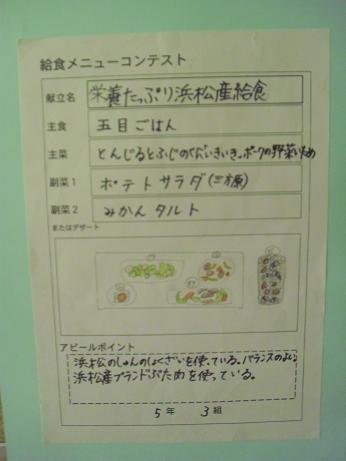 給食メニューコンテスト
献立名 栄養たっぷり浜松産給食
主食 五目ごはん
主菜 とんじるとふじのくにいきいきポークの野菜いため
副菜1 ポテトサラダ(三方原)
副菜2 みかんタルト
またはデザート
アピールポイント
浜松のしゅんのしょくざいを使っている。バランスのよい
浜松産ブランドぶた肉を使っている。
5年 3組